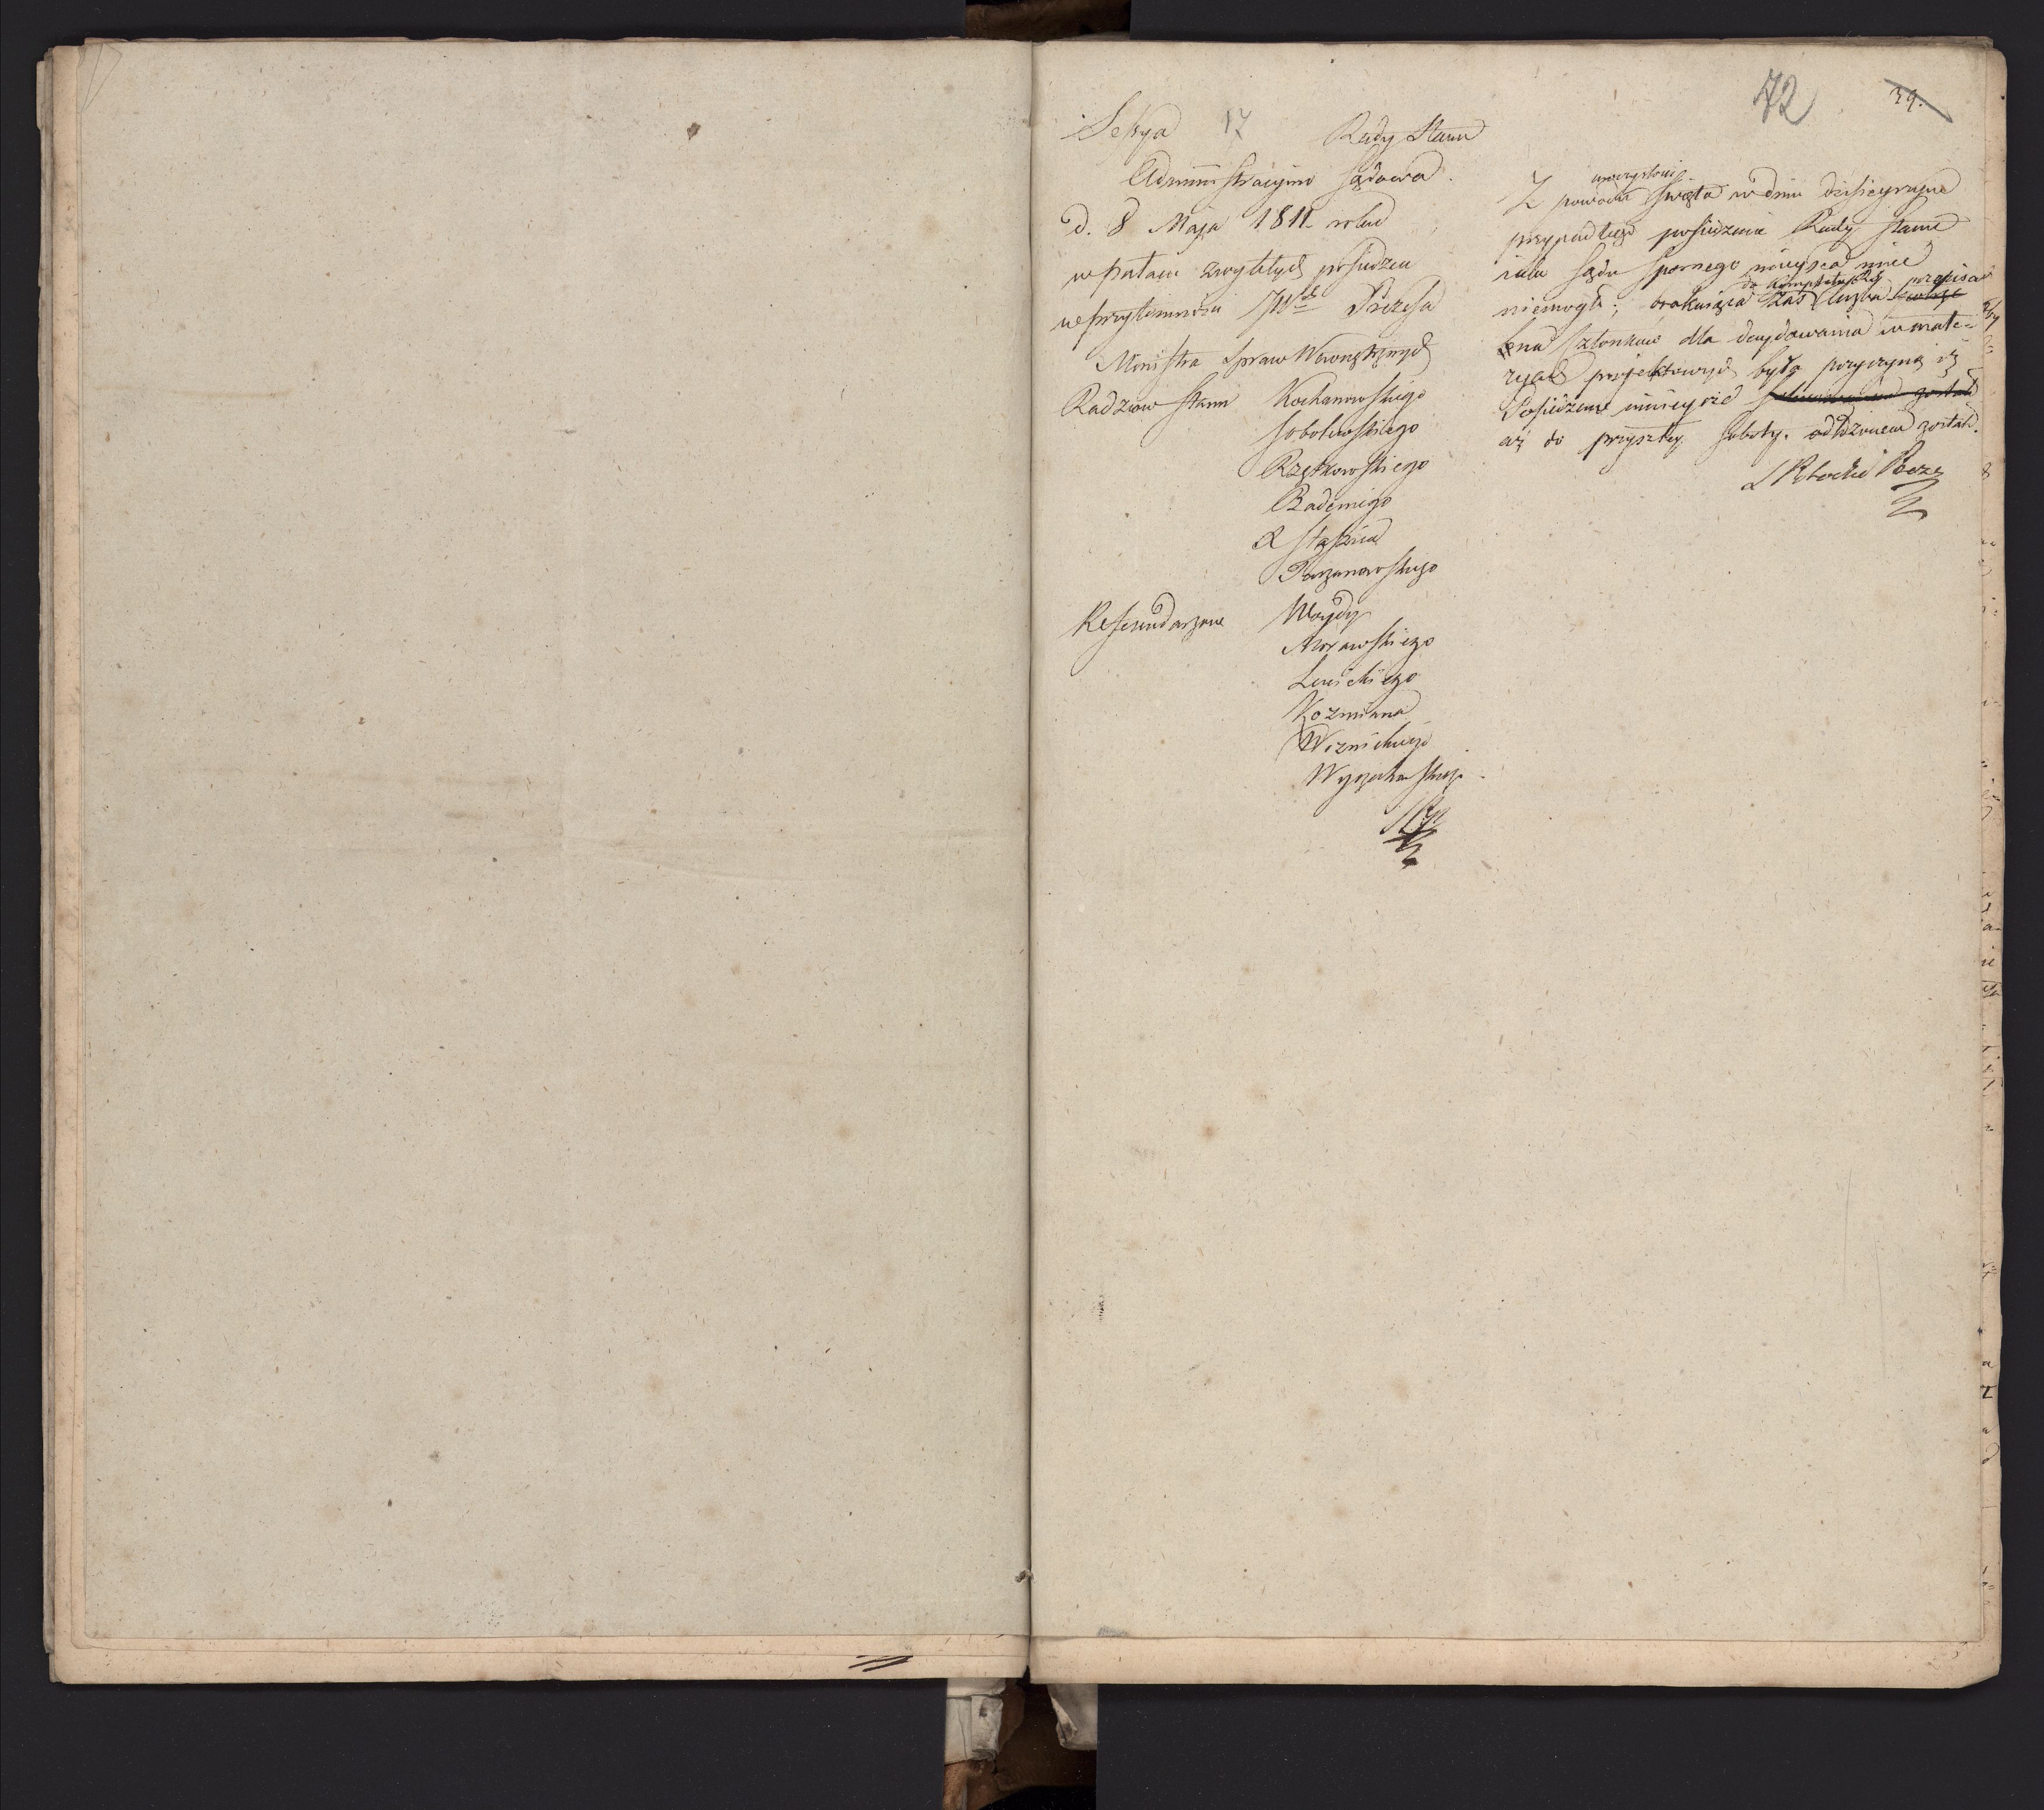 72
39.
Sessya 17 Rady Stanu
Administracyino Sądowa.
d. 8 Maja 1811 roku
w pałacu zwykłych posiedzeń
w przytomności JW Prezesa
Ministra Spraw Wewnętrznych
Radzców Stanu Kochanowskiego
Sobolewskiego
Rzętkowskiego
Badeniego
X Staszica
Tarzanowskiego
Referendarzow Woydy
Morawskiego
Lewickiego
Kozmiana
Woznickiego
Wyczechowskiego
uroczystości
Z powodu święta w dniu dzisieyszym
przypadłego posiedzenie Rady Stanu
iako Sądu Spornego mieysca mieć
do kompletu przepisa
niemogło; brakuiąca zaś liczba
na Członków dla decydowania w mate=
ryach projektowych była przyczyną iż
Posiedzenie ninieysze został
aż do przyszłey soboty. odłożonem został.
S Potocki Prezes